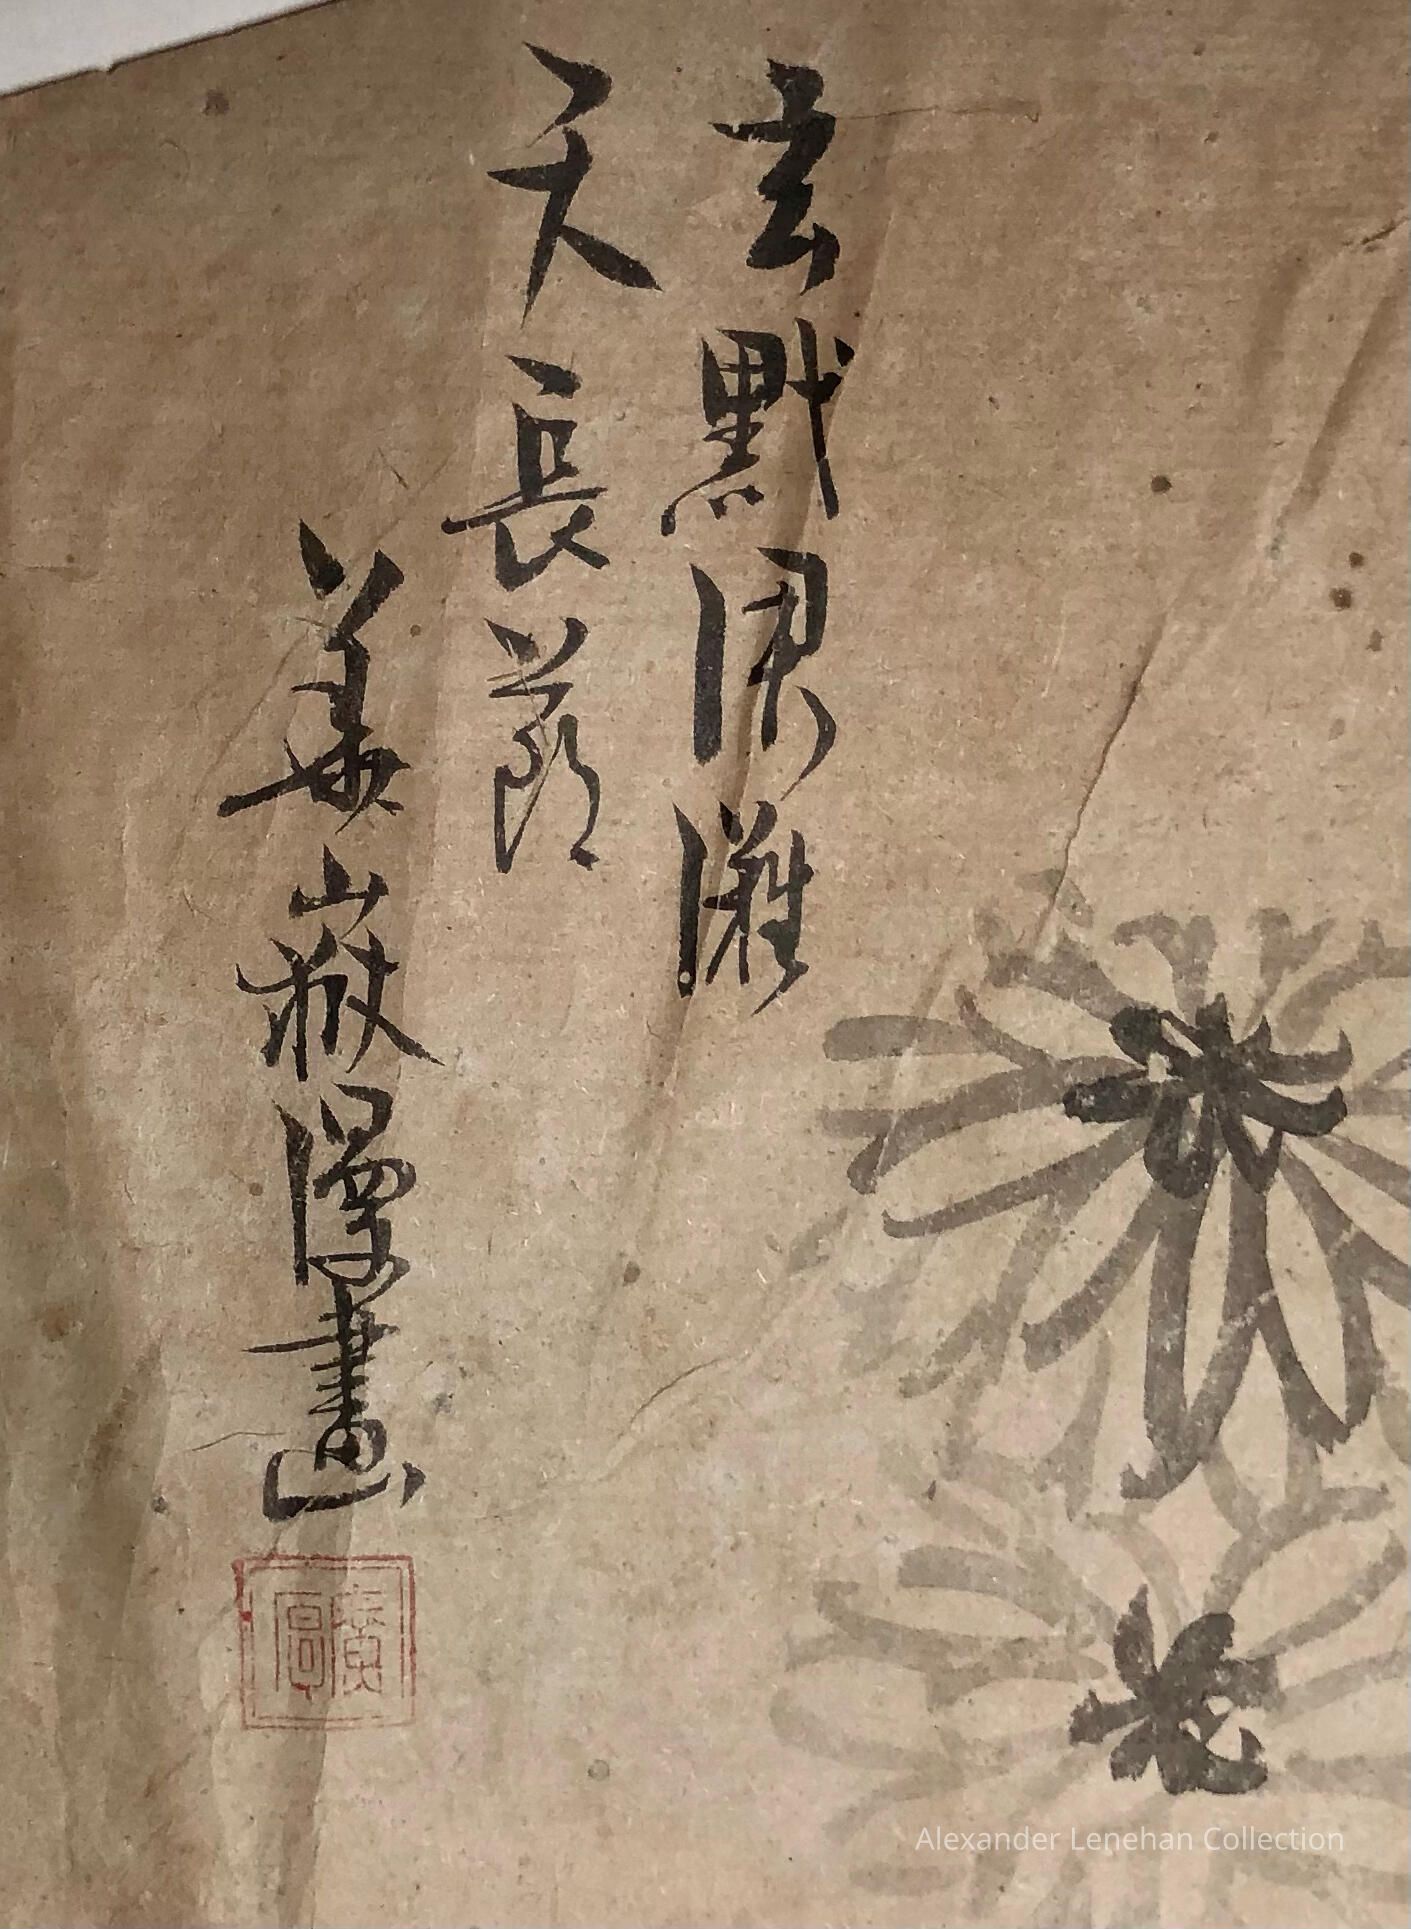 玄黓涒灘
天長節
姜嶽漫畫
Alexander Lenehan Collection